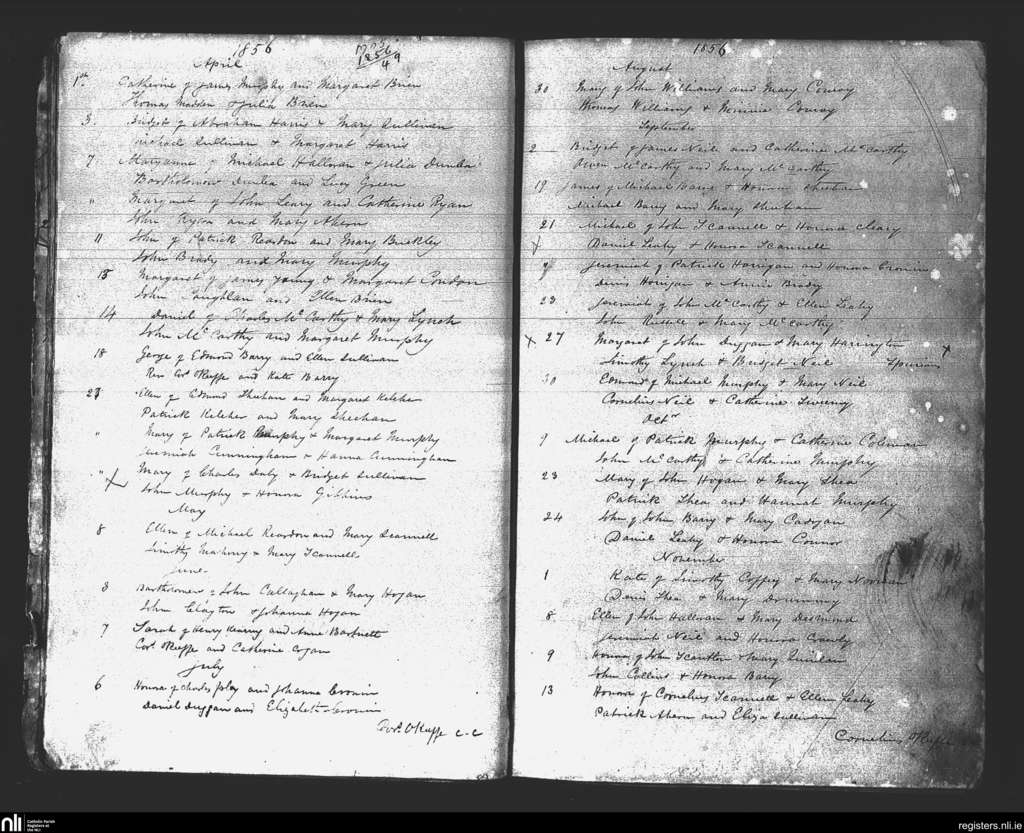 1856
April
1st Catherine of James Murphy and Margaret Brien
Thomas Madden & Julia Brien
3. Bridget of Abraham Harris & Mary Sullivan
Michael Sullivan & Margaret Harris
7 Maryanne of Michael Halloran & Julia Dunlea
Bartholomew Dunlea and Lucy Green
" Margaret of John Leary and Catherine Ryan
John Ryan and Mary Ahern
11 John of Patrick Reardon and Mary Buckley
John Brady and Mary Murphy
13 Margaret of James Young & Margaret Condon
John Coughlan and Ellen Brien
14 Daniel of Charles McCarthy & Mary Lynch
John McCarthy and Margaret Murphy
18 George of Edmond Barry and Ellen Sullivan
Rev Cors OKeeffe and Kate Barry
23 Ellen of Edmond Sheehan and Margaret Keleher
Patrick Keleher and Mary Sheehan
" Mary of Patrick Murphy & Margaret Murphy
Jeremiah Cunningham & Hanna Cunningham
" Mary of Charles Daly & Bridget Sullivan
John Murphy & Honora Gibbins
May
8 Ellen of Michael Reardon and Mary Scannell
Timothy Mahony & Mary Scannell
June
3 Bartholomew of John Callaghan & Mary Hogan
John Clayton & Johanna Hogan
7 Sarah of Henry Kearny and Anne Bartnett
Cors OKeeffe and Catherine Cogan
July
6 Honora of Charles Foley and Johanna Cronin
Daniel Duggan and Elizabeth Cronin
Cors. OKeeffe C-C
1856
August
30 Mary of John Williams and Mary Conroy
Thomas Williams & Conroy
September
2 Bridget of James Neil and Catherine McCarthy
Owen McCarthy and Mary McCarthy
19 James of Michael Barry & Honora Sheehan
Michael Barry and Mary Sheehan
21 Michael of John Scannell & Honora Cleary
Daniel Leahy & Honora Scannell
Jeremiah of Patrick Horrigan and Honora Cronin
Denis Horrigan & Annie Brady
23 Jeremiah of John McCarthy & Ellen Leahy
John Russell & Mary McCarthy
27 Margaret of John Duggan & Mary Harrington
Timothy Lynch & Bridget Neil Spurious
30 Edmond of Michael Murphy & Mary Neil
Cornelius Neil & Catherine Sweeny
Octr
9 Michael of Patrick Murphy & Catherine Coleman
John McCarthy & Catherine Murphy
23 Mary of John Hogan & Mary Shea
Patrick Shea and Hannah Murphy
24 John of John Barry & Mary Cadogan
Daniel Leahy & Honora Connor
November
1 Kate of Timothy Coffey & Mary Noonan
Denis Shea & Mary
8 Ellen of John Halloran & Mary Desmond
Jeremiah Neil and Honora Crowly
9 Honora of John Scanlon & Mary Quinlan
John Collins & Honora Barry
13 Honora of Cornelius Scannell & Ellen Leahy
Patrick Ahern and Eliza Sullivan
Cornelius OKeeffe
nli Catholic Parish Registers at the NLI
registers.nli.ie